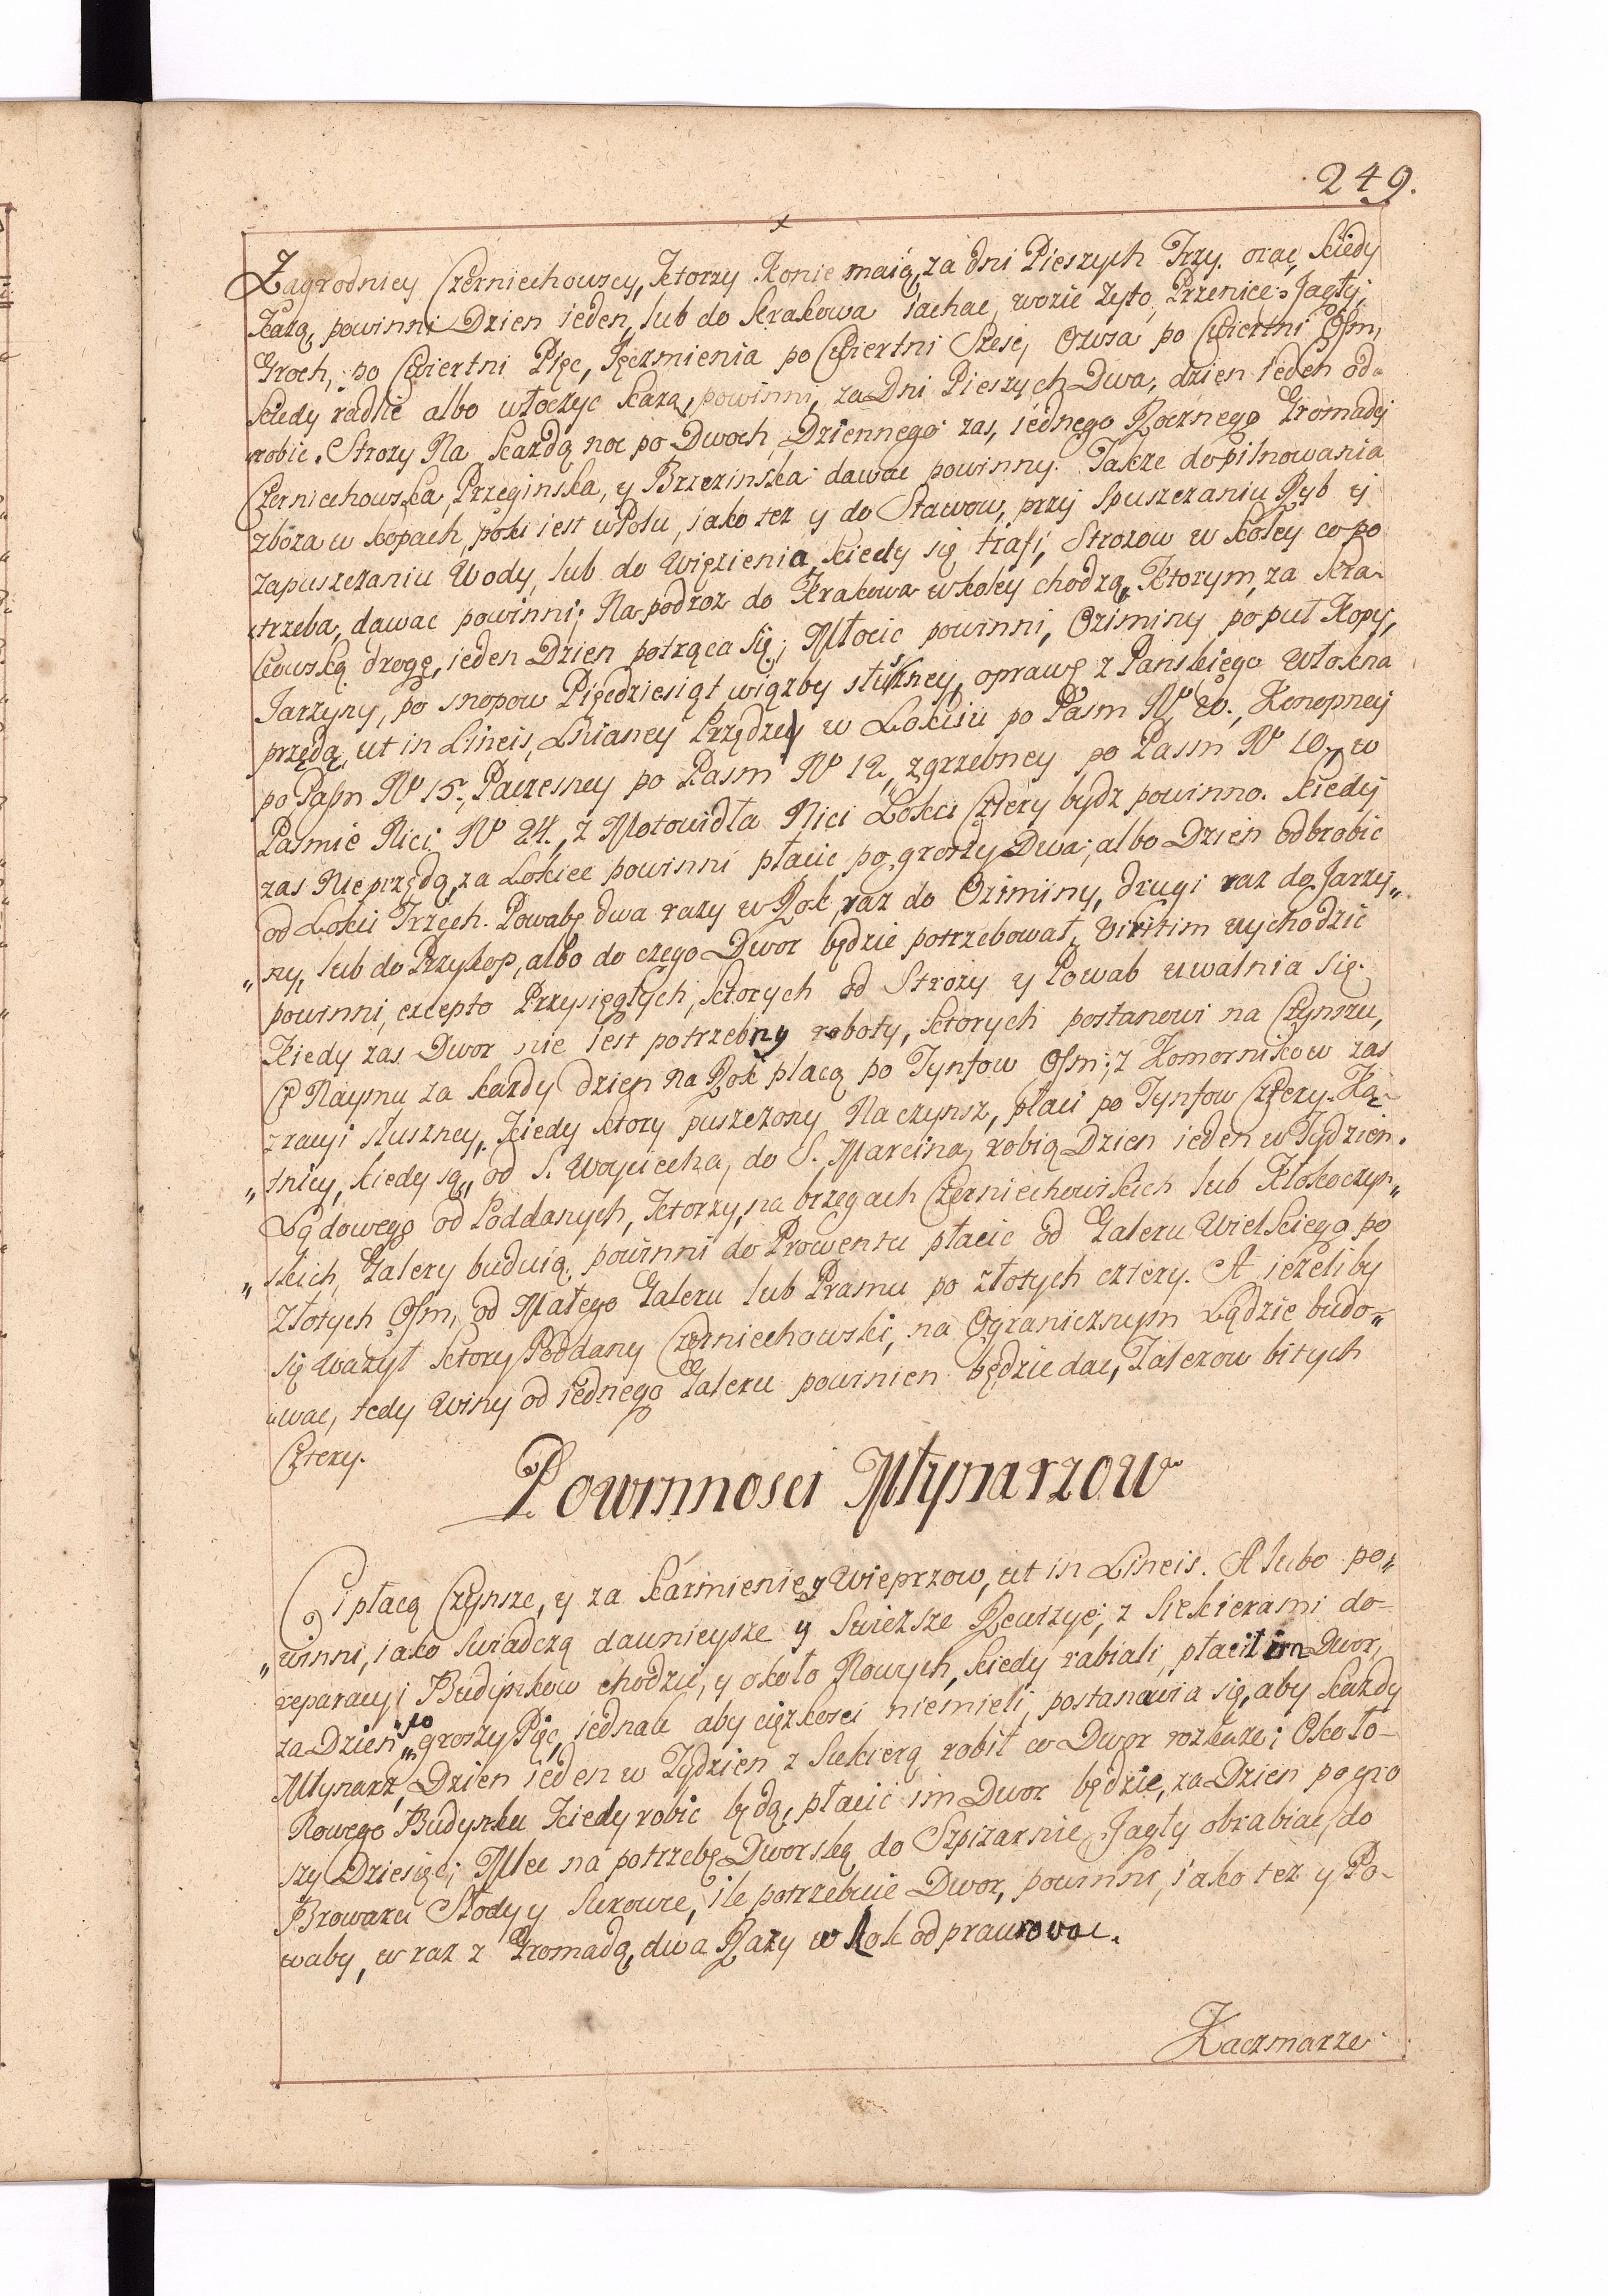 249.
Zagrodnicy Czerniechowscy, Ktorzy Konie maią, za dni Pieszych Trzy. orać, kiedy
Każą, powinni Dzien ieden, lub do Krakowa iachać, wozić Zyto, Przenicę, Jagły,
Groch, po Cwiertni Pięc, Jęczmienia po Cwiertni Szesci, Owsa po Cwiertni Osm,
kiedy radlić albo włoczyc każą, powinni, za Dni Pieszych Dwa, dzien ieden od„
„robic. Strozy Na każdą noc po Dwoch, Dziennego zas, iednego Rocznego Gromady
Czerniechowska, Przeginska, y Brzezinska dawac powinny. Takze do pilnowania
zboza w kopach, poki iest w Polu, iako tez y do Stawow, przy Spuszczaniu Ryb y
zapuszczaniu Wody, lub do Więzienia, kiedy się trafi, Strozow w koley co po
„trzeba, dawac powinni; Na podroz do Krakowa w koley chodzą, Ktorym, za Kra-
kowską drogę, ieden Dzien potrąca się; Młocic powinni, Oziminy po puł Kopy,
Jarzyny, po snopow Pięcdziesiąt wiązby słuszney, oprawę z Panskiego Włokna
przędą, ut in Lineis, Lnianey Przędzey w Lokciu po Pasm No 20., Konopney
po Pasm No 15., Paczesney po Pasm No 12., zgrzebney po Pasm No 10, w
Pasmie Nici No 24., z Motowidła Nici Lokci Cztery bydz powinno. kiedy
zas Nie przędą, za Lokiec powinni płacic po groszy Dwa; albo Dzien odbrobic
od Lokci Trzech. Powabę dwa razy w Rok, raz do Oziminy, drugi raz do Jarzy„
„ny, lub do Przykop, albo do czego Dwor będzie potrzebował, Viritim wychodzić
powinni, excepto Przysięgłych, ktorych od Strozy y Powab uwalnia się.
Kiedy zas Dwor nie iest potrzebny roboty, ktorych postanowi na Czynszu,
Ci Naymu za kazdy dzien na Rok placą po Tynfow Osm; z Komornikow zas
z racyi słuszney, Kiedy ktory puszczony Na czynsz, płaci po Tynfow Cztery. Ką„
„tnicy, kiedy są, od S. Woyciecha, do S. Marcina, robią Dzien ieden w Tydzien.
Lądowego od Poddanych, Ktorzy, na brzegach Czerniechowskich lub Kłokoczyn„
„skich, Galery buduią, powinni do Prowentu płacic od Galeru Wielkiego po
Złotych Osm, od Małego Galeru lub Pramu po złotych cztery. A ieżeliby
się ważył ktory Poddany Czerniechowski, na Ogranicznym Lądzie budo„
„wac, tedy winy od iednego Galeru powinien będzie dac, Talerow bitych
Cztery.
Powinnosci Młynarzow
Ci płacą Czynsze, y za karmienie y Wieprzow, ut in Lineis. A lubo po„
„winni, iako swiadczą daunieysze y swieższe Rewizye; z siekierami do-
reparacyi Budynkow chodzić, y około Nowych, kiedy rabiali, płacił im Dwor,
za Dzien „po„ groszy Pięc, iednak aby cięzkosci niemieli, postanawia się, aby każdy
Młynarz, Dzien ieden w Tydzien z siekierą robił co Dwor rozkaze; Około-
Nowego Budynku Kiedy robic będą, płacic im Dwor będzie, za Dzien po gro
szy Dziesięc; Mlec na potrzebę Dworską do Szpizarnie, Jagły obrabiac, do
Browaru Słody y surowe, ile potrzebuie Dwor, powinni, iako tez y Po-
waby, w raz z Gromadą, dwa Razy w Rok odprawowac.
Kaczmarze